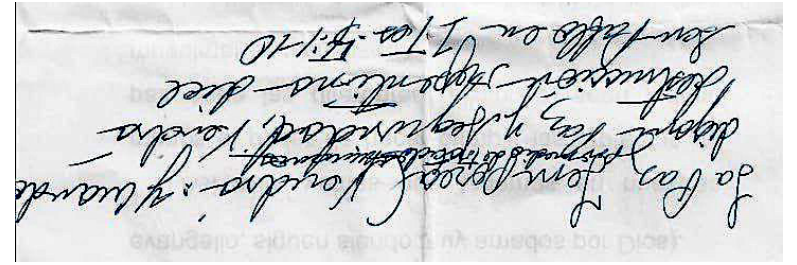 La Paz Temporea (Vendrá: y cuando
por medio de
digan: Paz y Seguridad, Vendrá
destrucción repentina dice
San Pablo en I Tes. 5:1-10